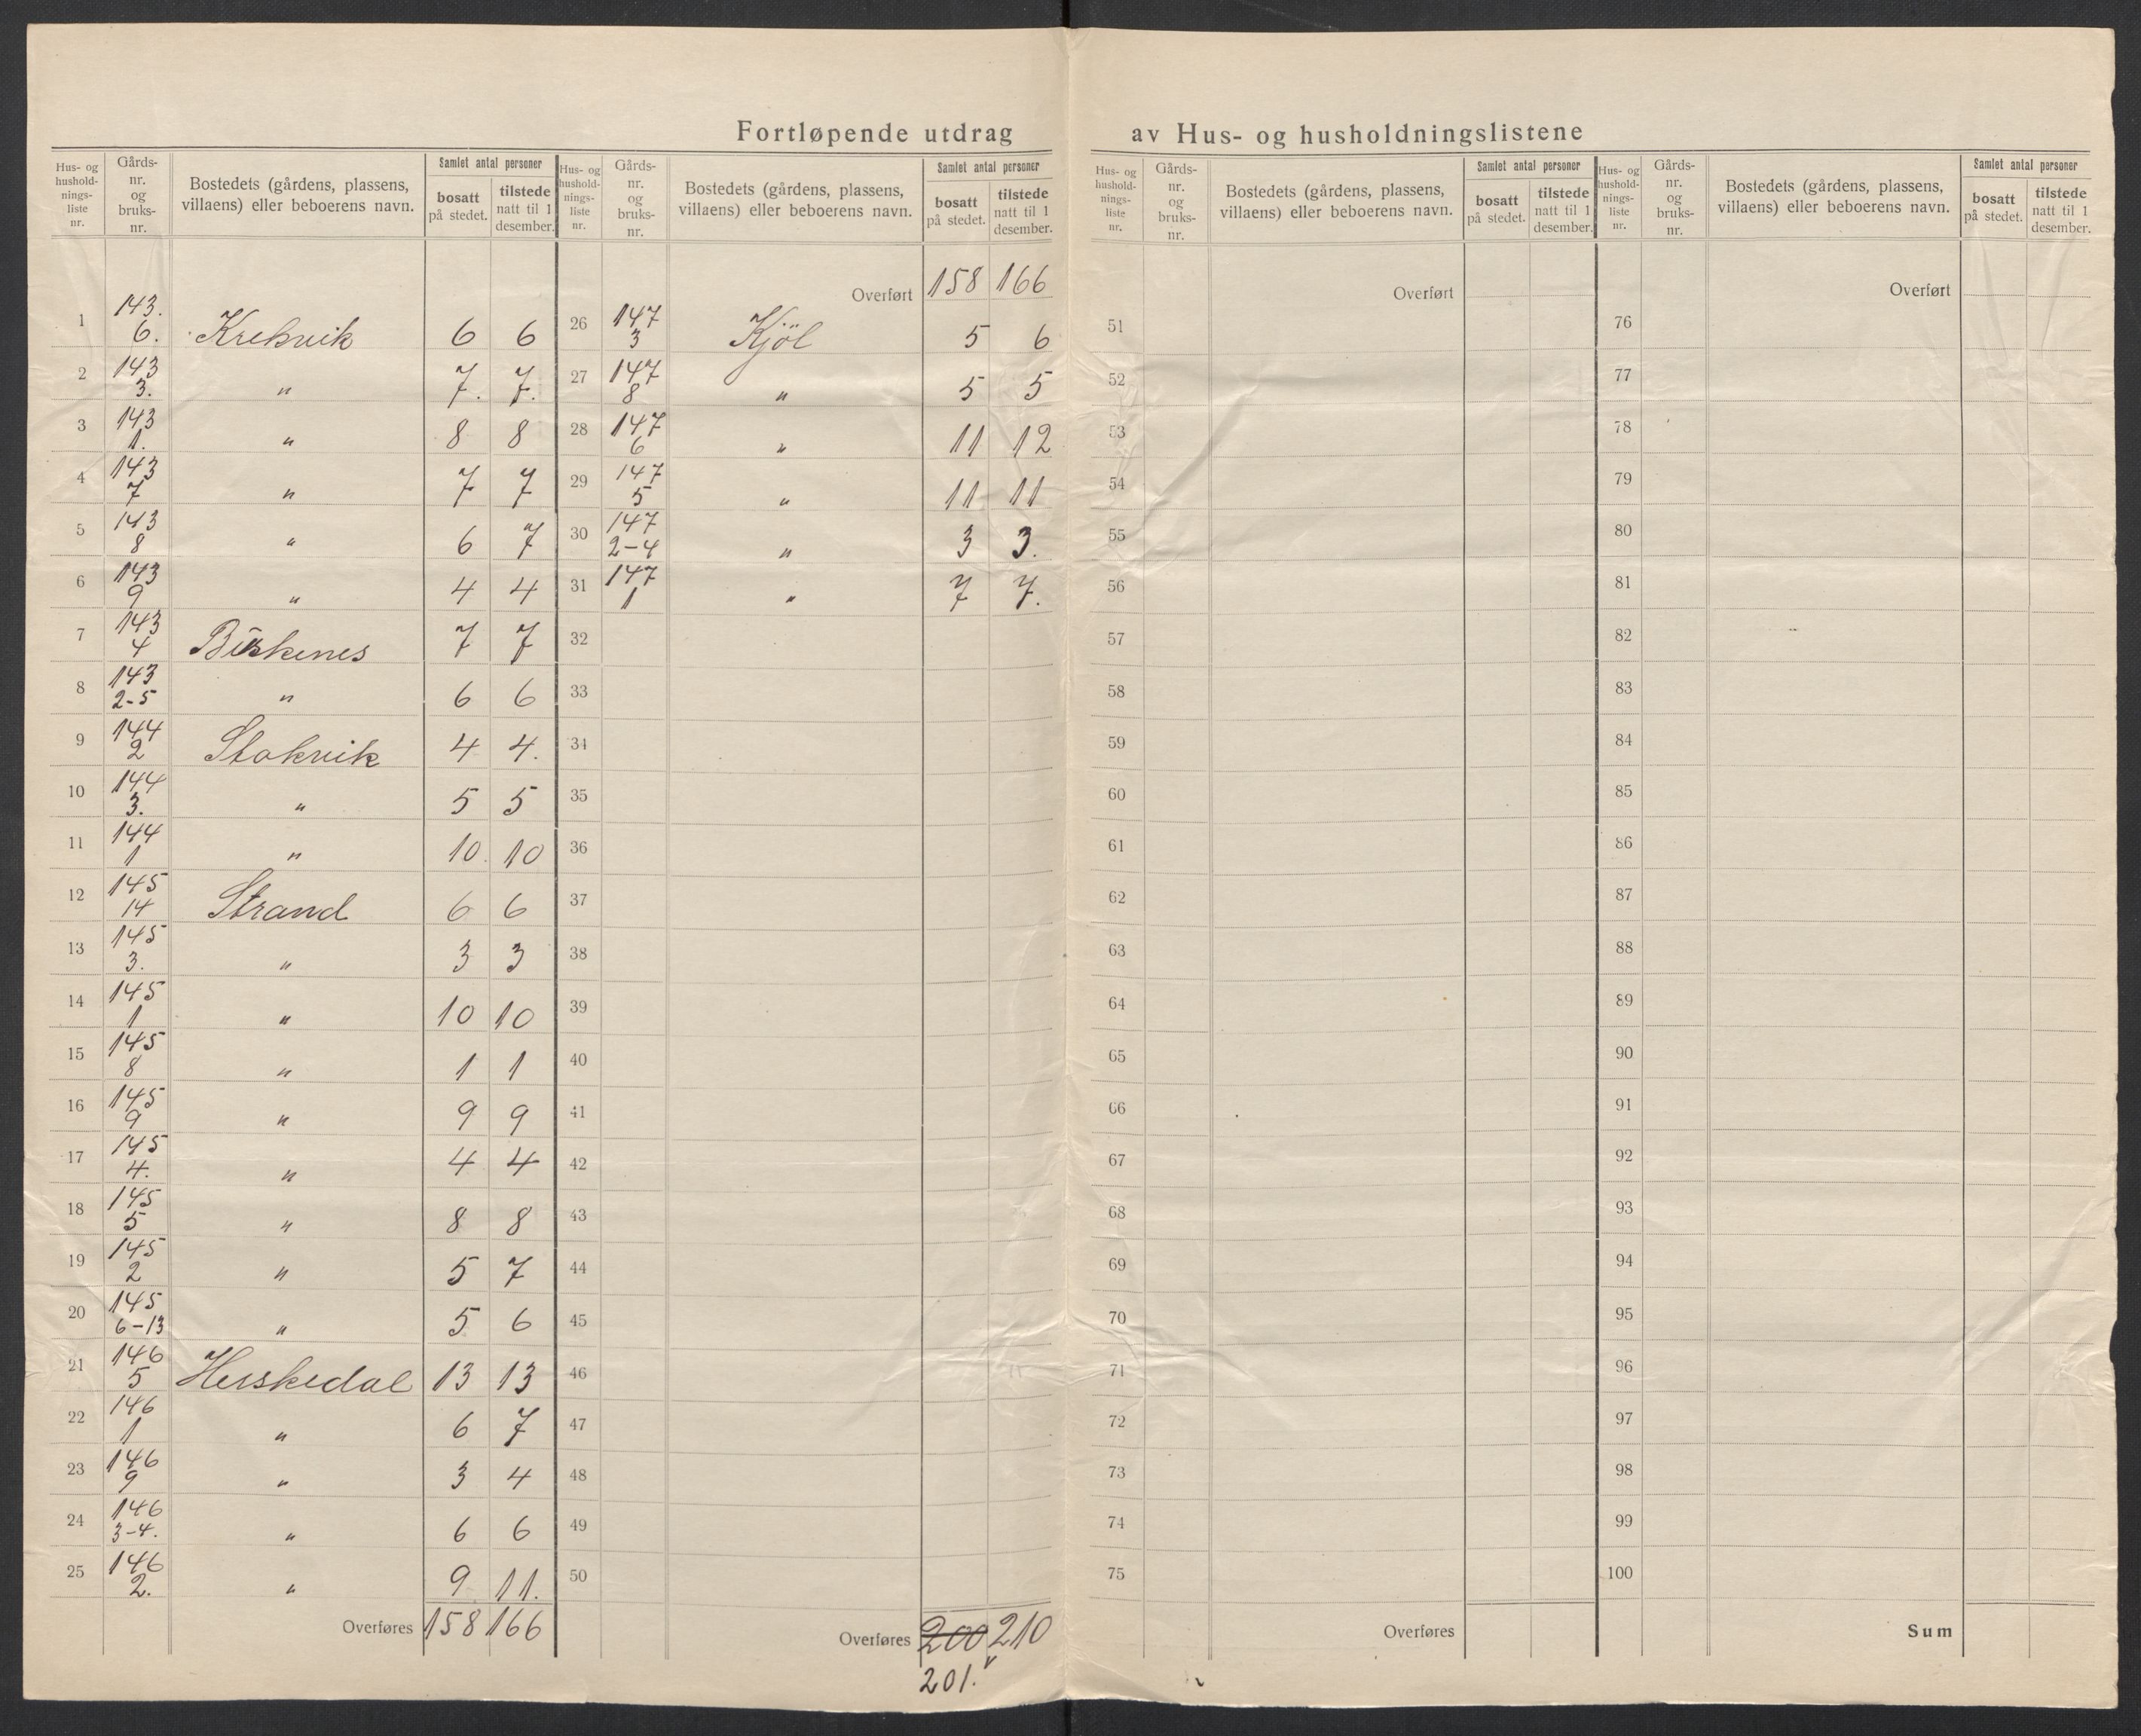 Fortløpende utdrag av Hus- og husholdningslistene
Hus- og hushold- nings- liste nr. | Gårds- nr. og bruks- nr. | Bostedets (gårdens, plassens, villaens) eller beboerens navn. | Samlet antal personer | bosatt på stedet. | tilstede natt til 1 desember.
1 | 143. 6. | Krekvik | 6 | 6
2 | 143 3. | " | 7. | 7.
3 | 143 1. | " | 8 | 8
4 | 143 7 | " | 7 | 7
5 | 143 8 | " | 6 | 7
6 | 143 9 | " | 4 | 4
7 | 143 4 | 7 | 7
8 | 143 2-5 | " | 6 | 6
9 | 144 2 | Stokvik | 4 | 4.
10 | 144 3. | " | 5 | 5
11 | 144 1 | " | 10. | 10
12 | 145 14 | Strand | 6 | 6
13 | 145 3. | " | 3 | 3
14 | 145 1 | " | 10 | 10
15 | 145 8 | " | 1 | 1
16 | 145 9 | " | 9 | 9
17 | 145 4. | " | 4 | 4
18 | 145 5 | " | 8 | 8
19 | 145 2 | " | 5 | 7
20 | 145 6-13 | " | 5 | 6
21 | 146 5 | Herskedal | 13 | 13
22 | 146 1 | " | 6 | 7
23 | 146 9 | " | 3 | 4
24 | 146 3-4. | " | 6 | 6
25 | 146 2. | " | 9 | 11.
Overføres 158 166
Hus- og hushold- nings- liste nr. | Gårds- nr. og bruks- nr. | Bostedets (gårdens, plassens, villaens) eller beboerens navn. | Samlet antal personer | bosatt på stedet. | tilstede natt til 1 desember.
Overført 158 166
26 | 147 3 | Kjöl | 5 | 6
27 | 147 8 | " | 5 | 5
28 | 147 6 | " | 11 | 12
29 | 147 5 | " | 11 | 11
30 | 147 2-4 | " | 3 | 3.
31 | 147 1 | " | 7 | 7.
32
33
34
35
36
37
38
39
40
41
42
43
44
45
46
47
48
49
50
Overføres 200 210
201.
Hus- og hushold- nings- liste nr. | Gårds- nr. og bruks- nr. | Bostedets (gårdens, plassens, villaens) eller beboerens navn. | Samlet antal personer | bosatt på stedet. | tilstede natt til 1 desember.
Overført
51
52
53
54
55
56
57
58
59
60
61
62
63
64
65
66
67
68
69
70
71
72
73
74
75
Overføres
Hus- og hushold- nings- liste nr. | Gårds- nr. og bruks- nr. | Bostedets (gårdens, plassens, villaens) eller beboerens navn. | Samlet antal personer | bosatt på stedet. | tilstede natt til 1 desember.
Overført
76
77
78
79
80
81
82
83
84
85
86
87
88
89
90
91
92
93
94
95
96
97
98
99
100
Sum